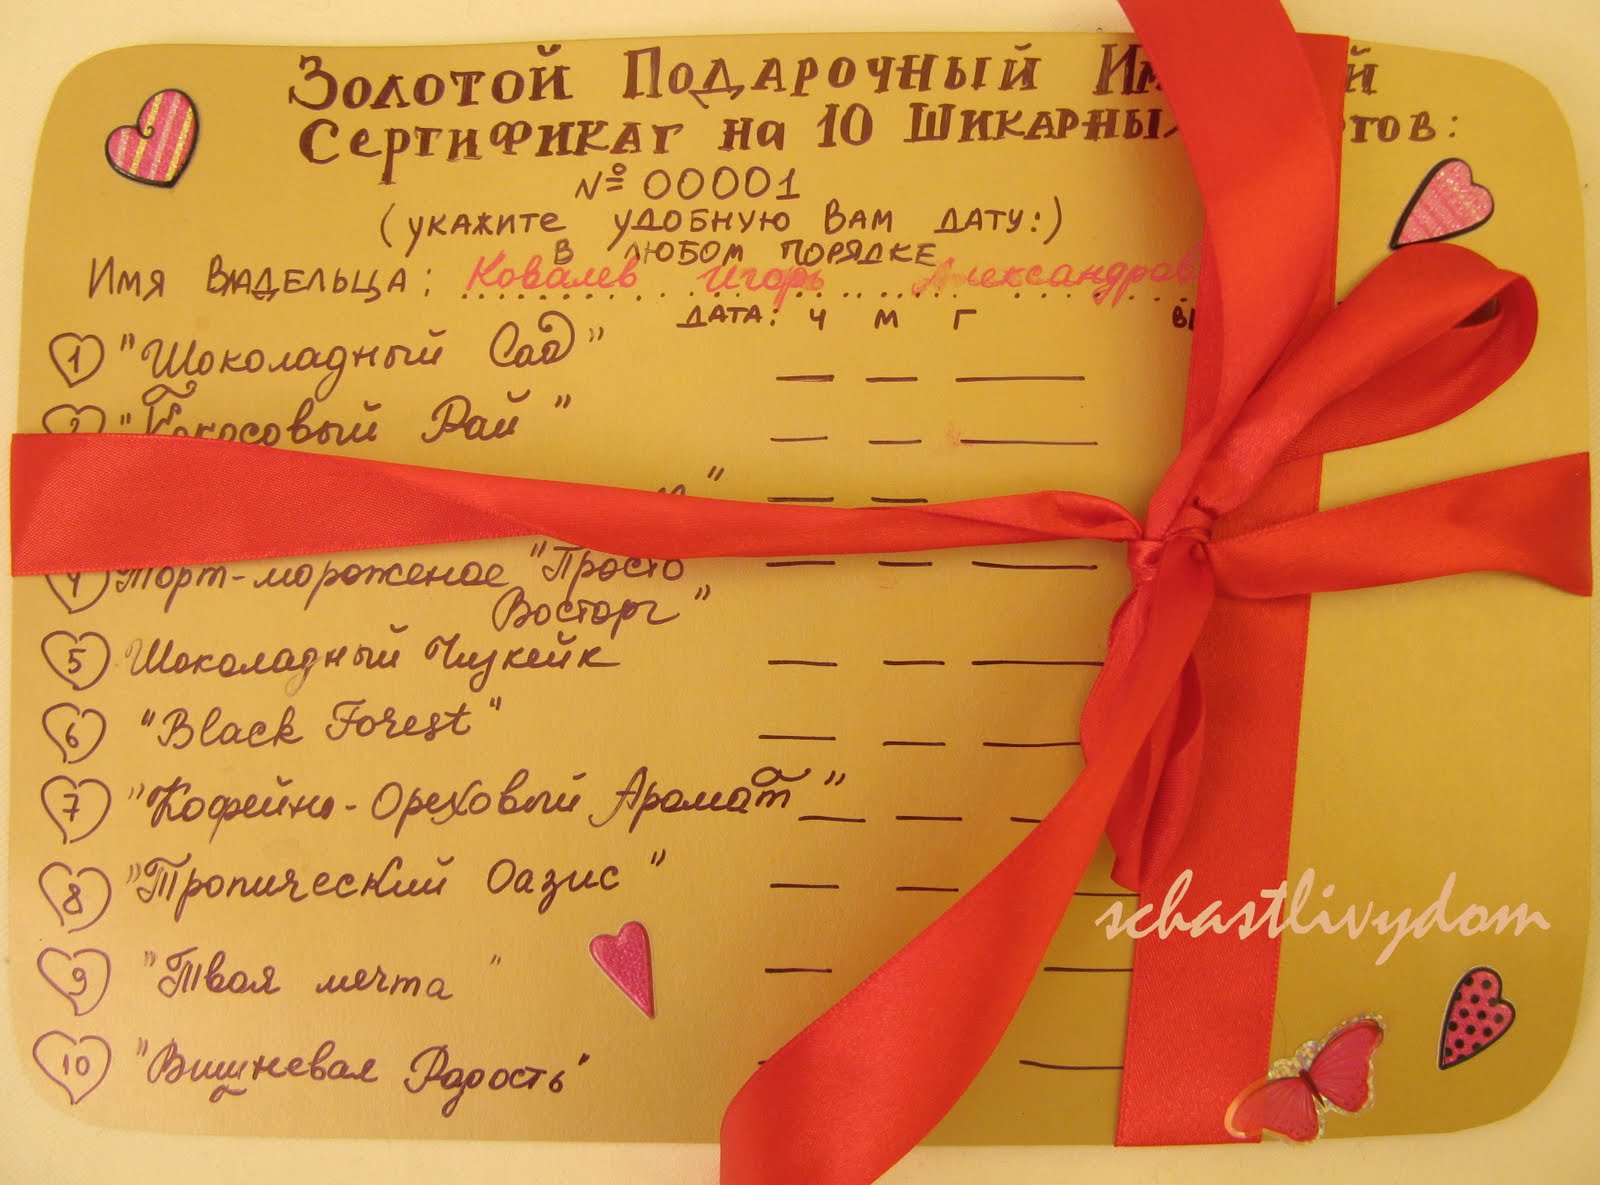 Золотой Подарочный
Сертификат на 10 Шикарных
№ 00001
(укажите удобную Вам дату:)
в любом порядке
Имя владельца: Ковалев Игорь
Дата: ч м г
1 "Шоколадный Сад"
2 "Кокосовый Рай"
4 Торт-мороженое "Просто
Восторг"
5 Шоколадный Чизкейк
6 "Black Forest"
7 "Кофейно-Ореховый Аромат"
8 "Тропический Оазис"
schastlivydom
9 "Твоя мечта"
10 "Вишневая Радость"